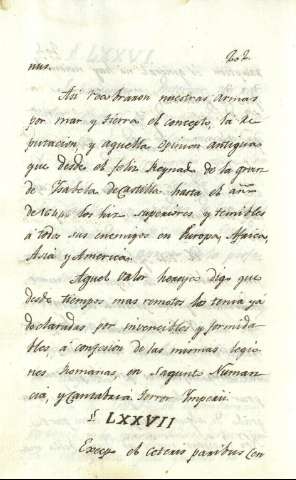 202
nus.
Asi recobraron nuestras armas
por mar y tierra el concepto, la re
putacion, y aquella opinion antigua
que desde el feliz Reynado de la gran
de Ysabela de Castilla hasta el año
de 1640 los hizo superiores, y temibles
à todos sus enemigos en Europa, Africa,
Asia y America.
Aquel valor heroyco digo que
desde tiempos mas remotos los tenia yà
declaradas por invencibles y formida
bles, à confesion de las mismas legio
nes Romanas, en Sagunto Numan
cia, y Cantabria terror Imperii.
§ LXXVII
Excepto el ceteris paribus con